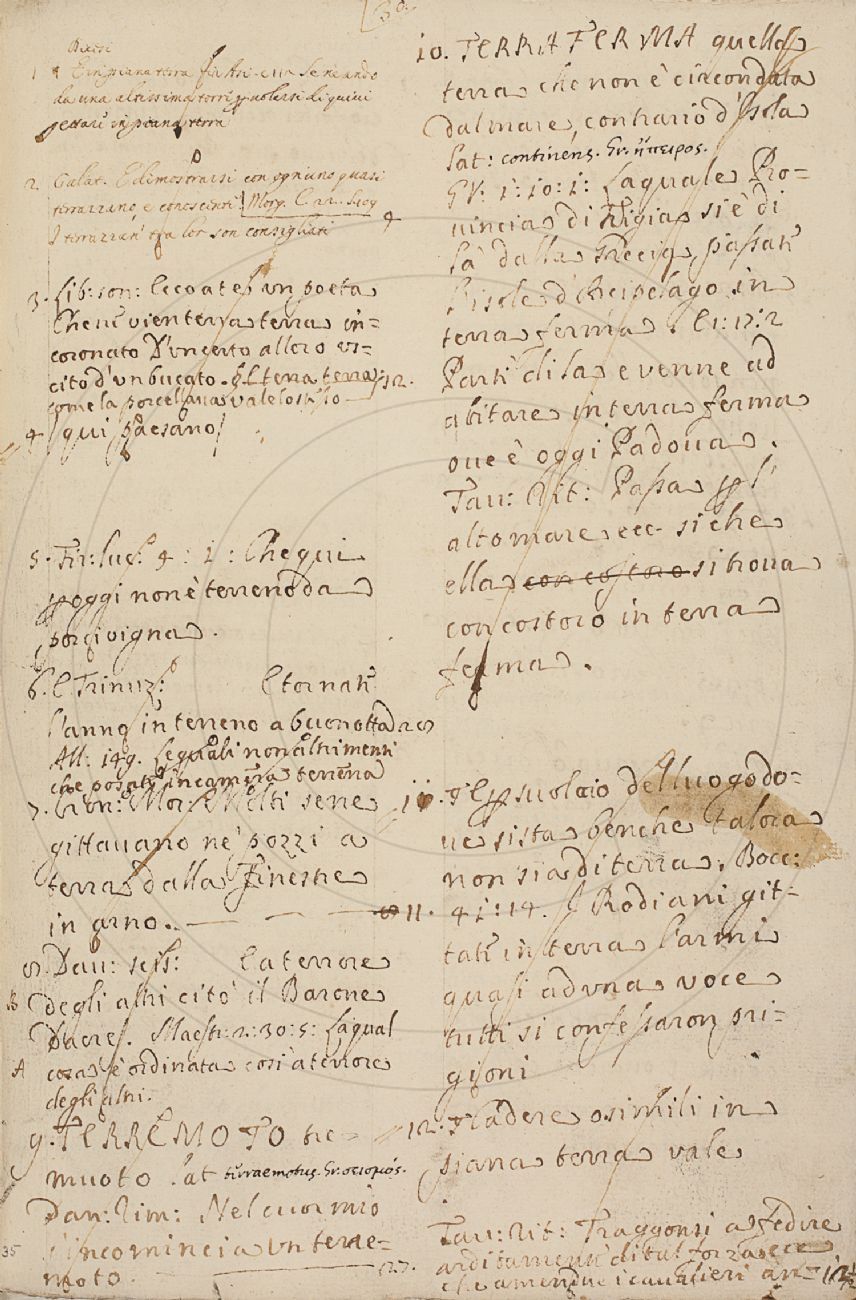 30.
1
da una altissima torre
gettare in piana terra
2. Galat. E dimostrarsi con ogniuno quasi
terrazzano, e conoscente. Morg. Car.
I terrazzan
lor son consigliati
3. Lib: son: Ecco a te un poeta
Che ne vien terra terra in=
coronato D'un certo alloro us=
cito d'un bucato. terra terra 12.
come la porcellana vale lo stesso
4 qui paesano
5. Fir: luc: 4: 1: Che qui
poggi non è terreno da
porci vigna.
6. E Trinuz: E tornati
l'anno in terreno a buonotta
All: 149. Le quali non altrimenti
che posate in camera terrena
7. Mor: Molti se ne
gittavano ne' pozzi a
terra dalla finestre
in arno. 11.
8. Dav: Scis: E a terrore
B degli altri citò il Barone
Dacres. Maestr: 2: 30: 5: La qual
A cosa è ordinata così a terrore
degli altri.
9. TERREMOTO tre=
muoto. lat terraemotus. Gr. σεισμός.
Dan: Rim: Nel cuor mio
s'incomincia un terre=
moto.
35
10. TERRA FERMA quella
terra che non è circondata
dal mare, contrario d'Isola
lat: continens. Gr. ἤπειρος.
GV: 1: 10: 1: La quale Pro=
vincia di Frigia si è di
là dalla Grecia, passati
l'isole d'Arcipelago in
terra ferma. E 1: 17: 2
Parti di la e venne ad
abitare in terra ferma
ove è oggi Padova.
Tav: Rit: Passa per l'
alto mare ecc. si che
ella con costoro si trova
con costoro in terra
ferma.
11. T per suolo del luogo do=
ve si sta benche talora
non sia di terra. Bocc:
41: 14. I Rodiani git=
tati in terra l'armi
quasi ad una voce
tutti si confessaron pri=
gioni
12. T Cadere o simili in
piana terra vale
Tav: Rit: Traggonsi a fedire
arditamente di tal forza ecc
che amendue i cavalieri an=